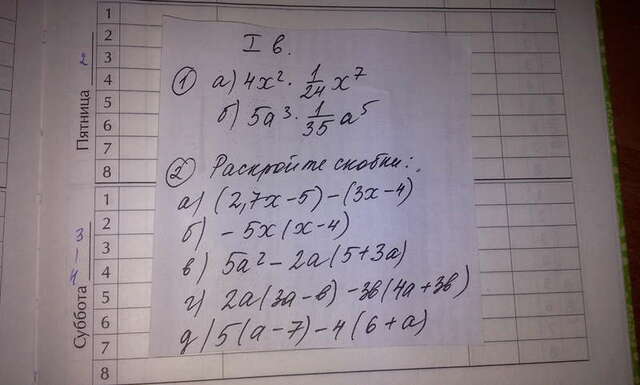 1
2
3
4
5
6
7
8
Пятница 2
1
2
3
4
5
6
7
8
Суббота
I в.
① а) 4x² · 1/24 x⁷
б) 5a³ · 1/35 a⁵
② Раскройте скобки:
а) (2,7x-5)-(3x-4)
б) -5x(x-4)
в) 5a²-2a(5+3a)
г) 2a(3a-в)-3в(4a+3в)
д) 5(a-7)-4(6+a)